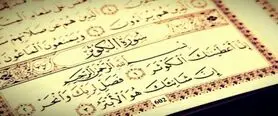 هُمْ عَن صَلَا
هُمْ يُرَآءُونَ ۝ وَيَمْنَعُونَ ٱلْمَاعُونَ
سُورَةُ الْكَوْثَرِ
بِسْمِ ٱللَّهِ ٱلرَّحْمَٰنِ ٱلرَّحِيمِ
إِنَّآ أَعْطَيْنَٰكَ ٱلْكَوْثَرَ ۝ فَصَلِّ لِرَبِّكَ وَٱنْحَرْ
إِنَّ شَانِئَكَ هُوَ ٱلْأَبْتَرُ
602